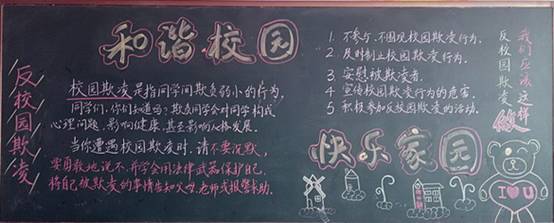 和谐·校园
反校园欺凌
校园欺凌是指同学间欺负弱小的行为,
同学们,你们知道吗?欺负同学会对同学构成
心理问题,影响健康,甚至影响人格发展。
当你遭遇校园欺凌时,请不要沉默,
要勇敢地说不,并学会用法律武器保护自己,
将自己被欺凌的事情告知父母,老师或报警求助。
1. 不参与、不围观校园欺凌行为.
2. 及时制止校园欺凌行为.
3. 安慰被欺凌者.
4. 宣传校园欺凌行为的危害.
5. 积极参加反校园欺凌的活动.
我们应该这样
反校园欺凌
做
快乐家园
I ♥ U